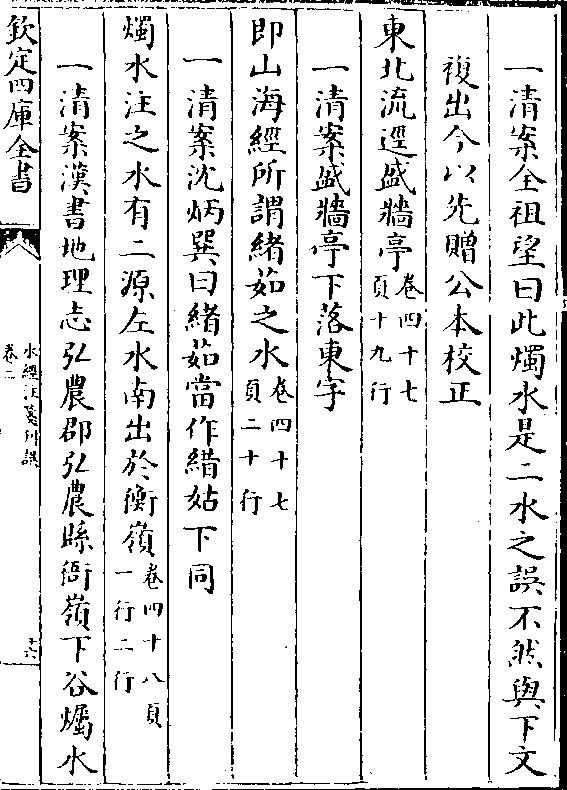 一清案全祖望曰此燭水是二水之誤不然與下文
複出今以先贈公本校正
東北流逕盛牆亭卷四十七頁十九行
一清案盛牆亭下落東字
即山海經所謂緒茹之水卷四十七頁二十行
一清案沈炳巽曰緒茹當作緒姑下同
燭水注之水有二源左水南出於衡嶺卷四十八頁一行二行
一清案漢書地理志弘農郡弘農縣衙嶺下谷爥水
欽定四庫全書
水經注箋刊誤
卷二
十六